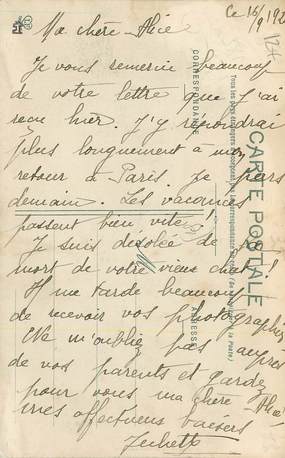 Ce 16/9/192
Ma chère Alice
Je vous remercie beaucoup
de votre lettre que j'ai
recu hier. J'y répondrai
plus longuement à mon
retour à Paris. Je pars
demain. Les vacances
passent bien vite!
Je suis désolée de
mort de votre vieux chat!
Il me tarde beaucoup
de recevoir vos photographies
Ne m'oubliez pas auprès
de vos parents et gardez
pour vous ma chère Alice
mes affectueux baisers
CARTE POSTALE
CORRESPONDANCE
ADRESSE